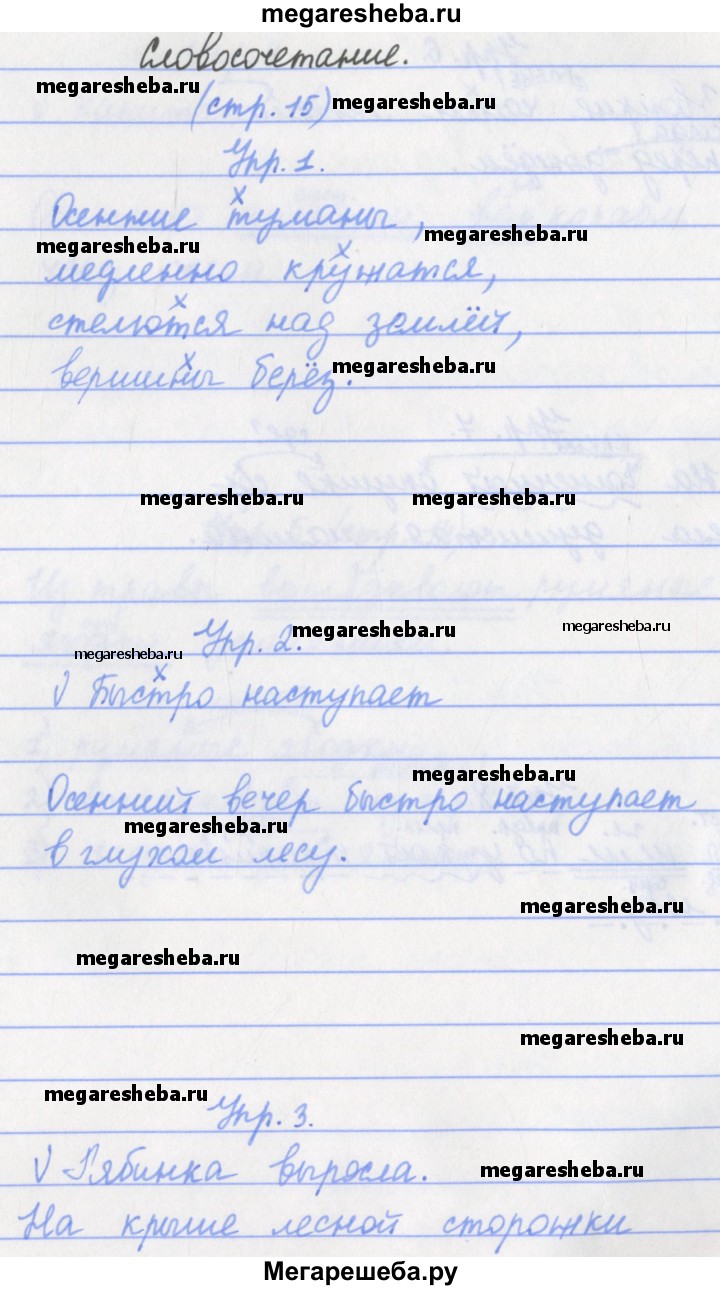 megaresheba.ru
Словосочетание.
megaresheba.ru
(стр. 15) megaresheba.ru
Упр. 1.
х
Осенние туманы, megaresheba.ru
megaresheba.ru х
медленно кружатся,
х
стелются над землёй,
х megaresheba.ru
вершины берёз.
megaresheba.ru megaresheba.ru
Упр. 2. megaresheba.ru megaresheba.ru
megaresheba.ru
х
V Быстро наступает
megaresheba.ru
Осенний вечер быстро наступает
megaresheba.ru
в глухом лесу.
megaresheba.ru
megaresheba.ru
megaresheba.ru
megaresheba.ru
Упр. 3.
V Рябинка выросла. megaresheba.ru
На крыше лесной сторожки
Мегарешеба.ру